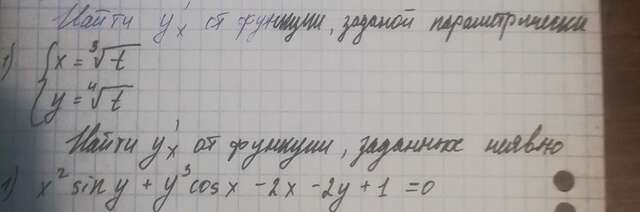 Найти y'ₓ от функции, заданой параметрически
1) { x = ∛t
{ y = ∜t
Найти y'ₓ от функции, заданных неявно
1) x² sin y + y³ cos x - 2x - 2y + 1 = 0